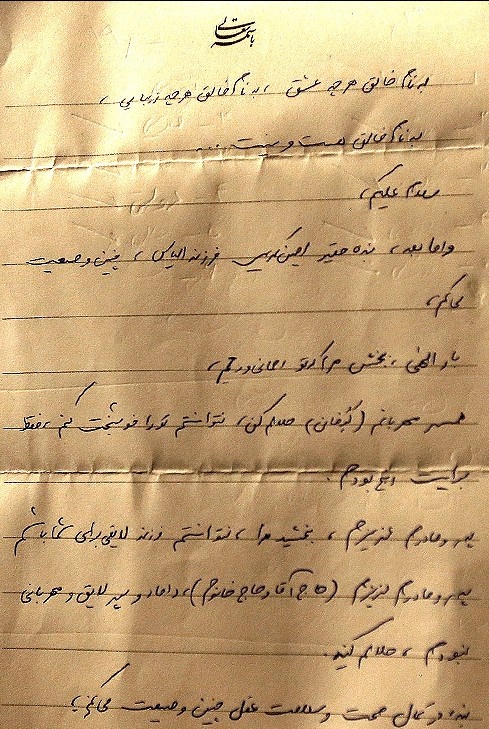 باسمه تعالی
به نام خالق هرچه عشق، به نام خالق هرچه زیبایی،
به نام خالق هست و نیست ...
سلام علیکم،
و اما بعد، بنده حقیر امین کریمی فرزند الیاس، چنین وصیت
می‌کنم،
بارالهی، ببخش مرا که تو
همسر مهربانم (                ) حلالم کن، نتوانستم تو را خوشبخت کنم، فقط
برایت رنج بودم.
پدر و مادرم عزیزم، ببخشید مرا، نتوانستم فرزند لایقی برای شما باشم
پدر و مادرم عزیزم (حاج آقا و حاج خانوم)، داماد و پسر لایق و مهربانی
نبودم، حلالم کنید.
بنده در کمال صحت و سلامت عقل چنین وصیت می‌کنم: